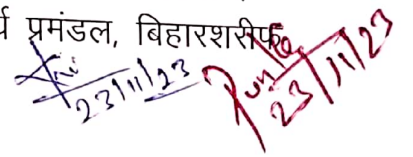 र्य प्रमंडल, बिहारशरीफ
23/11/23
23/11/23